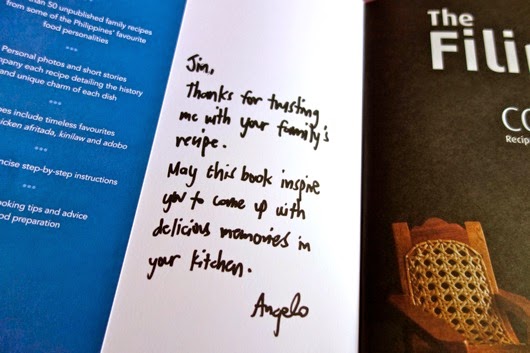 an 50 unpublished family recipes
from some of the Philippines' favourite
food personalities
Personal photos and short stories
pany each recipe detailing the history
and unique charm of each dish
pes include timeless favourites
hicken afritada, kinilaw and adobo
ncise step-by-step instructions
ooking tips and advice
od preparation
Jin,
Thanks for trusting
me with your family's
recipe.
May this book inspire
you to come up with
delicious memories in
your kitchen.
Angelo
The
Fili
CO
Recip